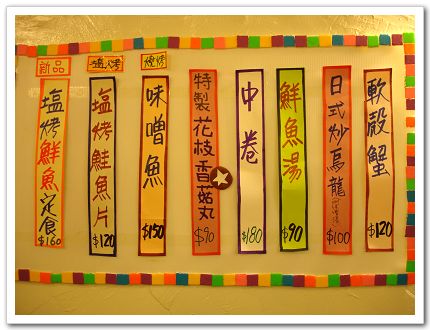 軟殼蟹 $120
日式炒烏龍 $100
鮮魚湯 $90
中卷 $180
特製花枝香菇丸 $90
燒烤
味噌魚 $150
塩烤鮭魚片 $120
新品
塩烤鮮魚定食 $160